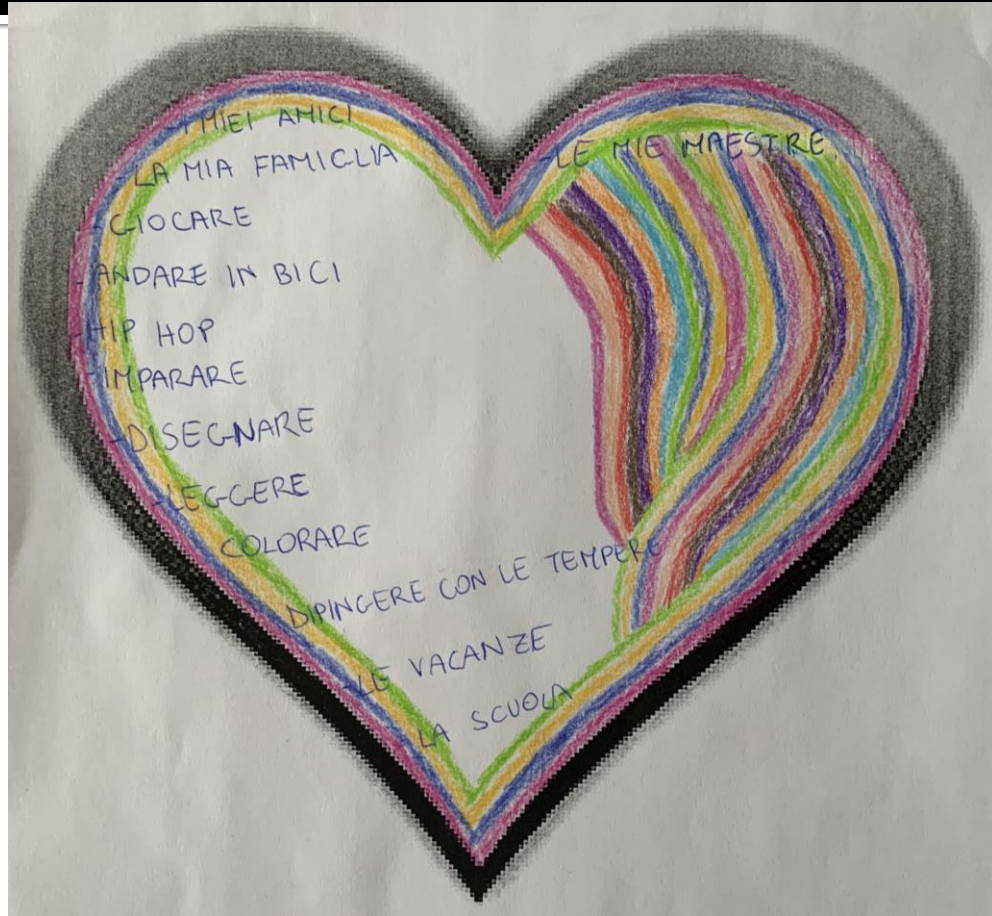 - I MIEI AMICI
- LA MIA FAMIGLIA
- GIOCARE
- ANDARE IN BICI
- HIP HOP
- IMPARARE
- DISEGNARE
- LEGGERE
COLORARE
DIPINGERE CON LE TEMPERE
- LE VACANZE
LA SCUOLA
- LE MIE MAESTRE